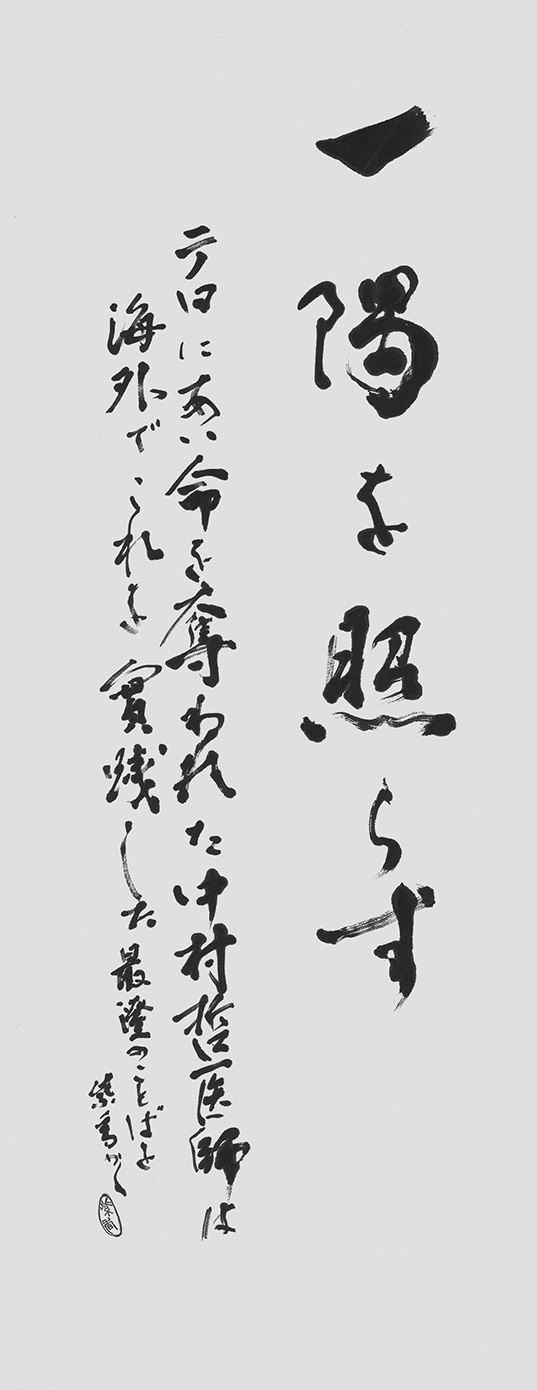 一隅を照らす
テロにあい命を奪われた中村哲医師は
海外でこれを實践した最澄のことばを
かく